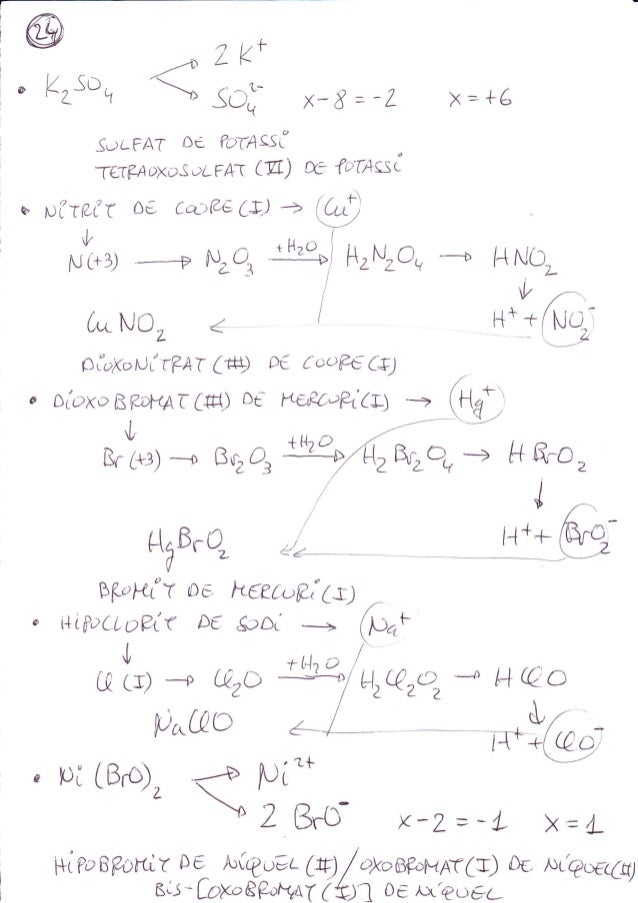 24
2 K⁺
• K₂SO₄
SO₄²⁻ x-8=-2 x=+6
SULFAT DE POTASSI
TETRAOXOSULFAT (VI) DE POTASSI
• NITRIT DE COURE (I) → Cu⁺
↓
N(+3) → N₂O₃ +H₂O → H₂N₂O₄ → HNO₂
↓
H⁺ + NO₂⁻
CuNO₂ ←
DIOXONITRAT (III) DE COURE (I)
• DIOXOBROMAT (III) DE MERCURI (I) → Hg⁺
↓
Br (+3) → Br₂O₃ +H₂O → H₂Br₂O₄ → HBrO₂
↓
H⁺ + BrO₂⁻
HgBrO₂ ←
BROMIT DE MERCURI (I)
• HIPOCLORIT DE SODI → Na⁺
↓
Cl (I) → Cl₂O +H₂O → H₂Cl₂O₂ → HClO
↓
NaClO ← H⁺ + ClO⁻
• Ni(BrO)₂ → Ni²⁺
2 BrO⁻ x-2=-1 x=1
HIPOBROMIT DE NÍQUEL (II) / OXOBROMAT (I) DE NÍQUEL (II)
BIS-[OXOBROMAT (I)] DE NÍQUEL